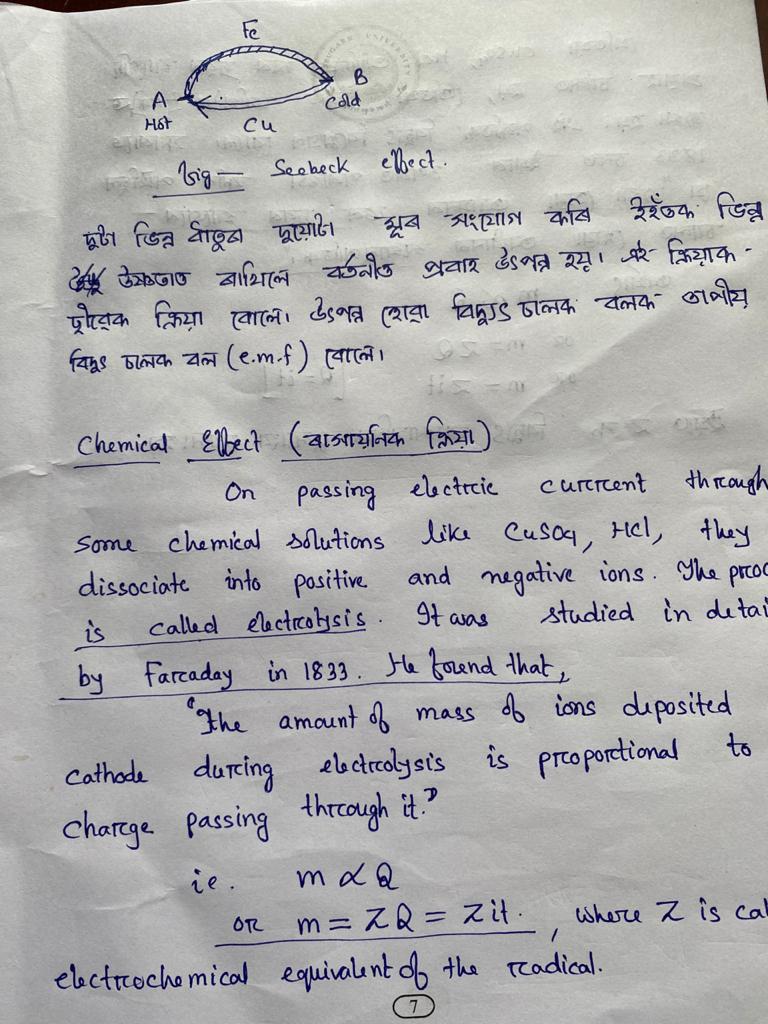 Fe
A
B
Hot
Cold
Cu
Fig — Seebeck effect.
দুটা ভিন্ন ধাতুৰ দুয়োটা মূৰ সংযোগ কৰি ইহঁতক ভিন্ন
উষ্ণতাত ৰাখিলে বৰ্তনীত প্ৰবাহ উৎপন্ন হয়। এই ক্ৰিয়াক -
ক্ৰিয়া বোলে। উৎপন্ন হোৱা বিদ্যুৎ চালক বলক তাপীয়
বিদ্যুৎ চালক বল (e.m.f) বোলে।
Chemical Effect (ৰাসায়নিক ক্ৰিয়া)
On passing electric current through
some chemical solutions like CuSO4, HCl, they
dissociate into positive and negative ions. The proc
is called electrolysis. It was studied in detai
by Faraday in 1833. He found that,
"The amount of mass of ions deposited
cathode during electrolysis is proportional to
charge passing through it."
ie. m ∝ Q
or m = ZQ = Zit. , where Z is cal
electrochemical equivalent of the radical.
7